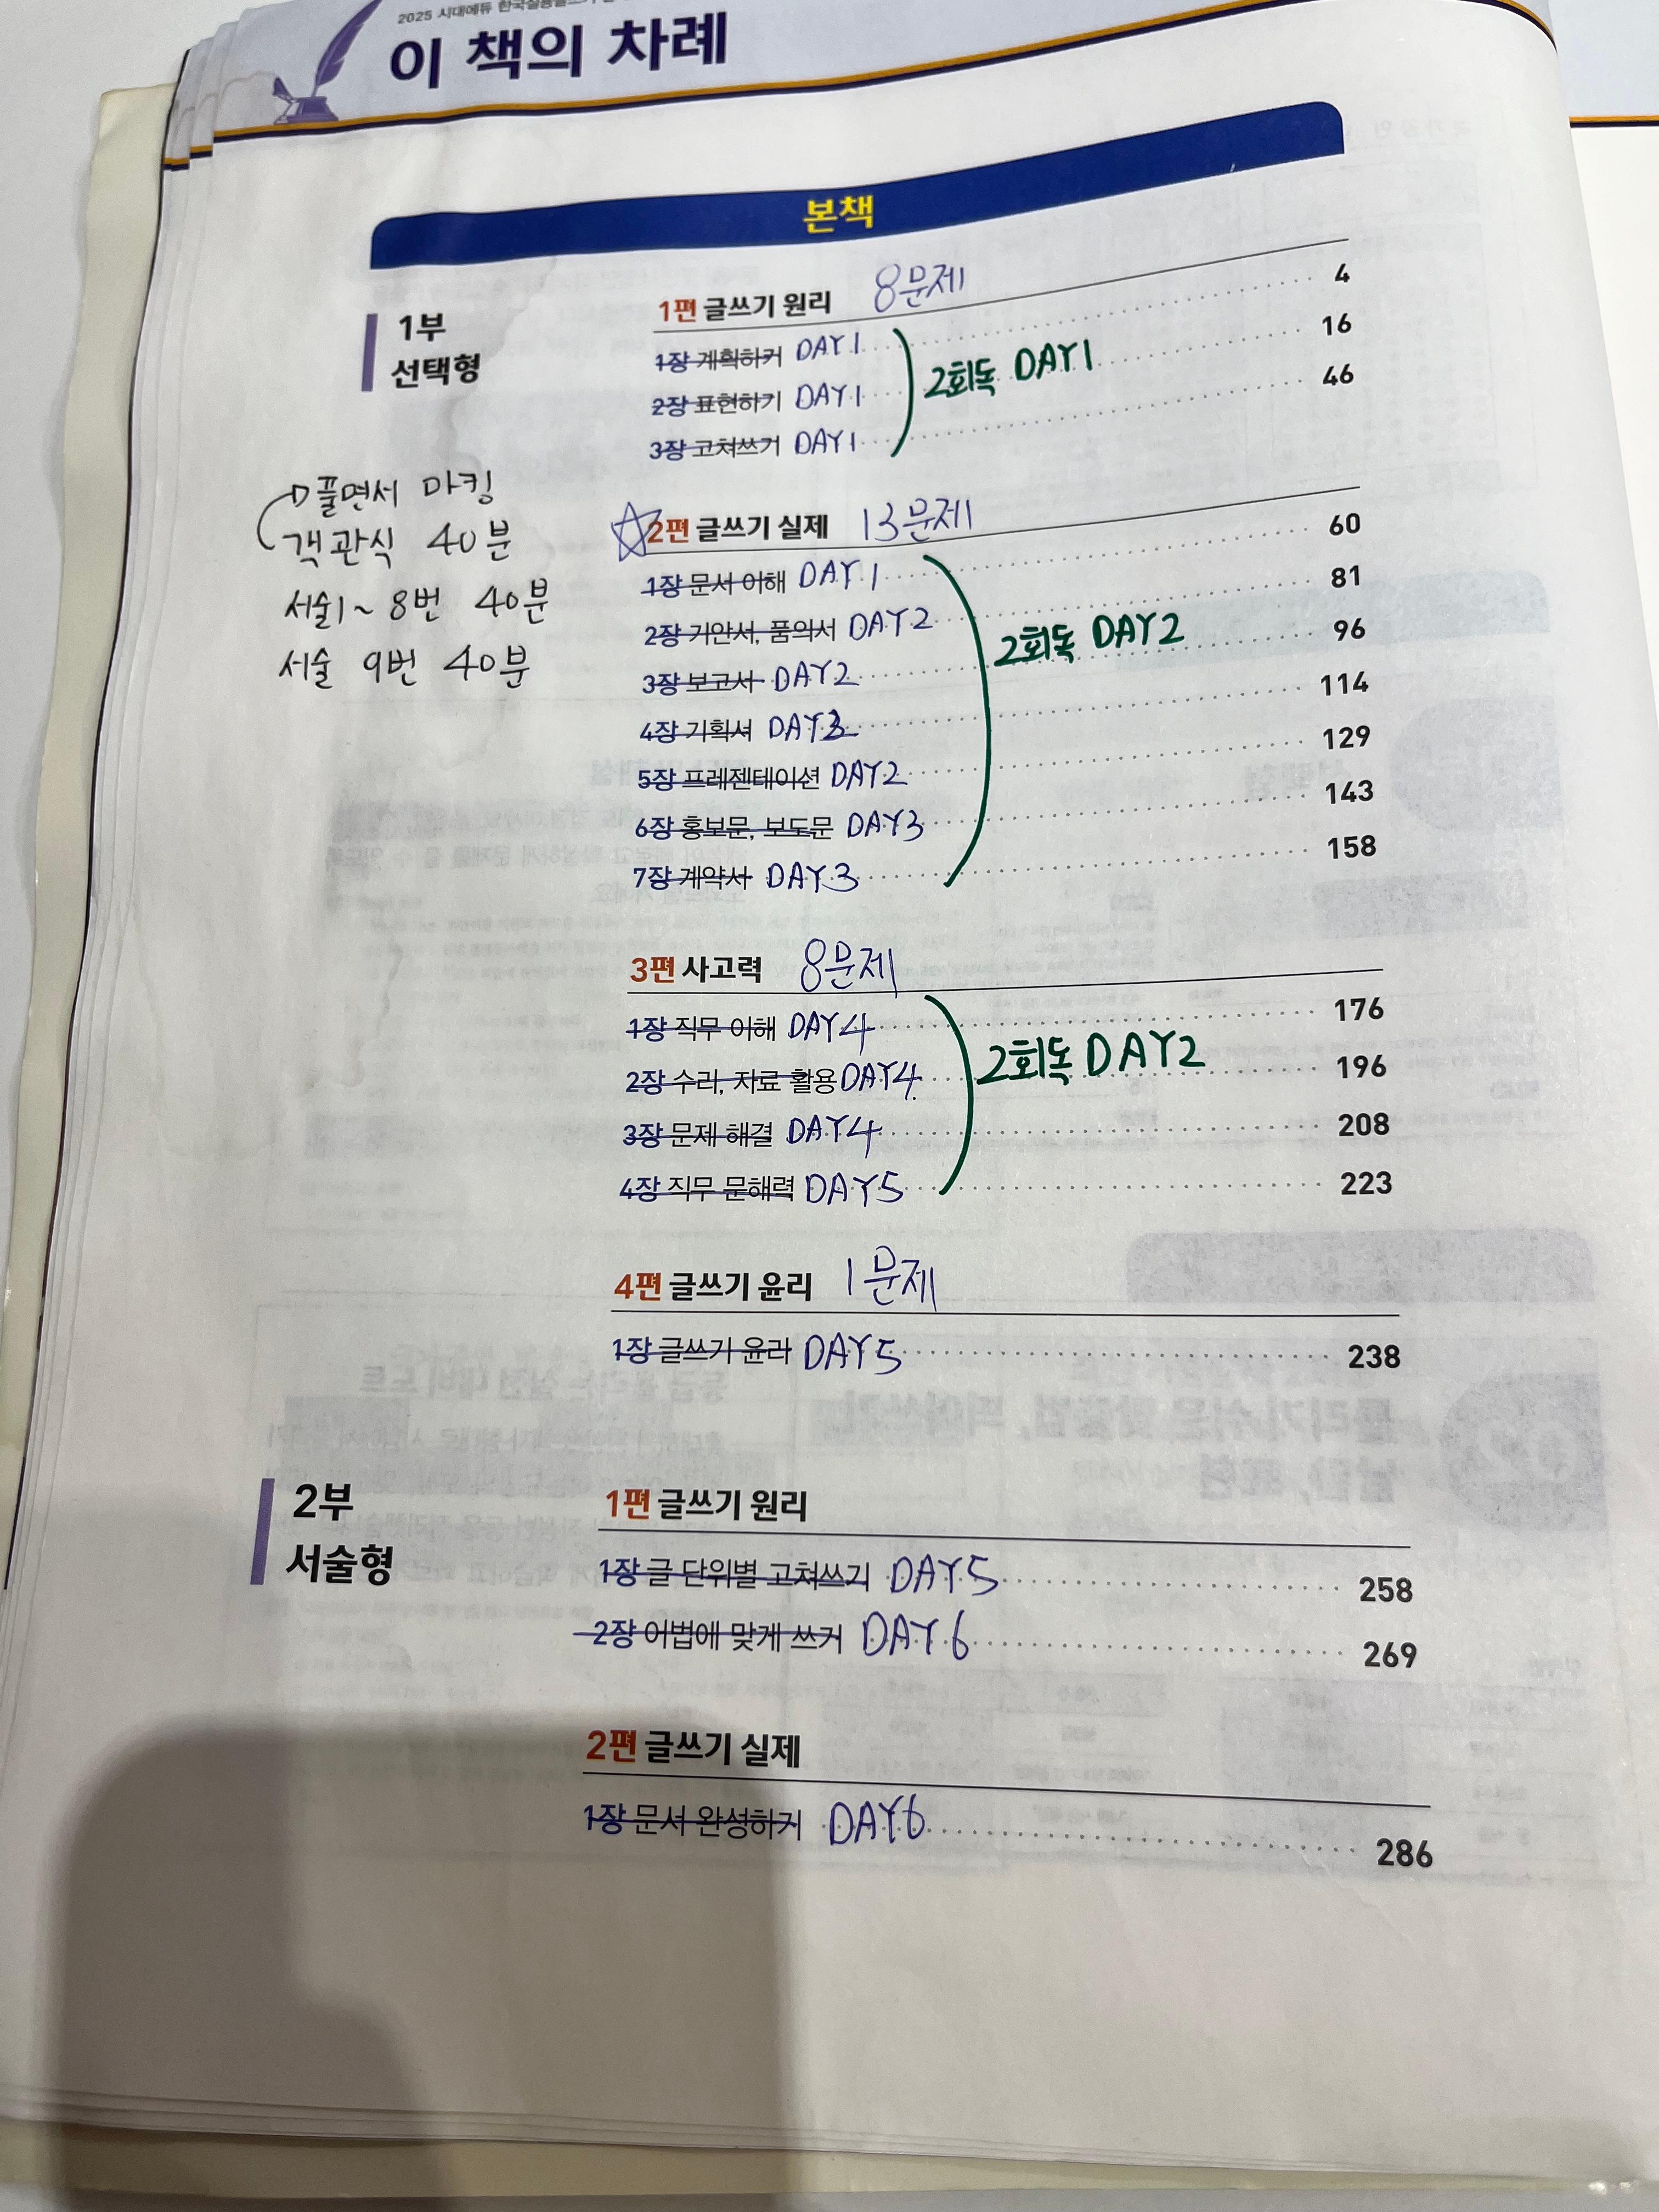 2025 시대에듀 한국실용글쓰기
이 책의 차례
본책
1부
선택형
1편 글쓰기 원리 8문제
1장 계획하기 DAY1 4
2장 표현하기 DAY1 16
3장 고쳐쓰기 DAY1 46
2회독 DAY1
풀면서 마킹
객관식 40분
서술1~8번 40분
서술 9번 40분
☆2편 글쓰기 실제 13문제
1장 문서 이해 DAY1 60
2장 기안서, 품의서 DAY2 81
3장 보고서 DAY2 96
4장 기획서 DAY3 114
5장 프레젠테이션 DAY2 129
6장 홍보문, 보도문 DAY3 143
7장 계약서 DAY3 158
2회독 DAY2
3편 사고력 8문제
1장 직무 이해 DAY4 176
2장 수리, 자료 활용 DAY4 196
3장 문제 해결 DAY4 208
4장 직무 문해력 DAY5 223
2회독 DAY2
4편 글쓰기 윤리 1문제
1장 글쓰기 윤리 DAY5 238
2부
서술형
1편 글쓰기 원리
1장 글 단위별 고쳐쓰기 DAY5 258
2장 어법에 맞게 쓰기 DAY6 269
2편 글쓰기 실제
1장 문서 완성하기 DAY6 286